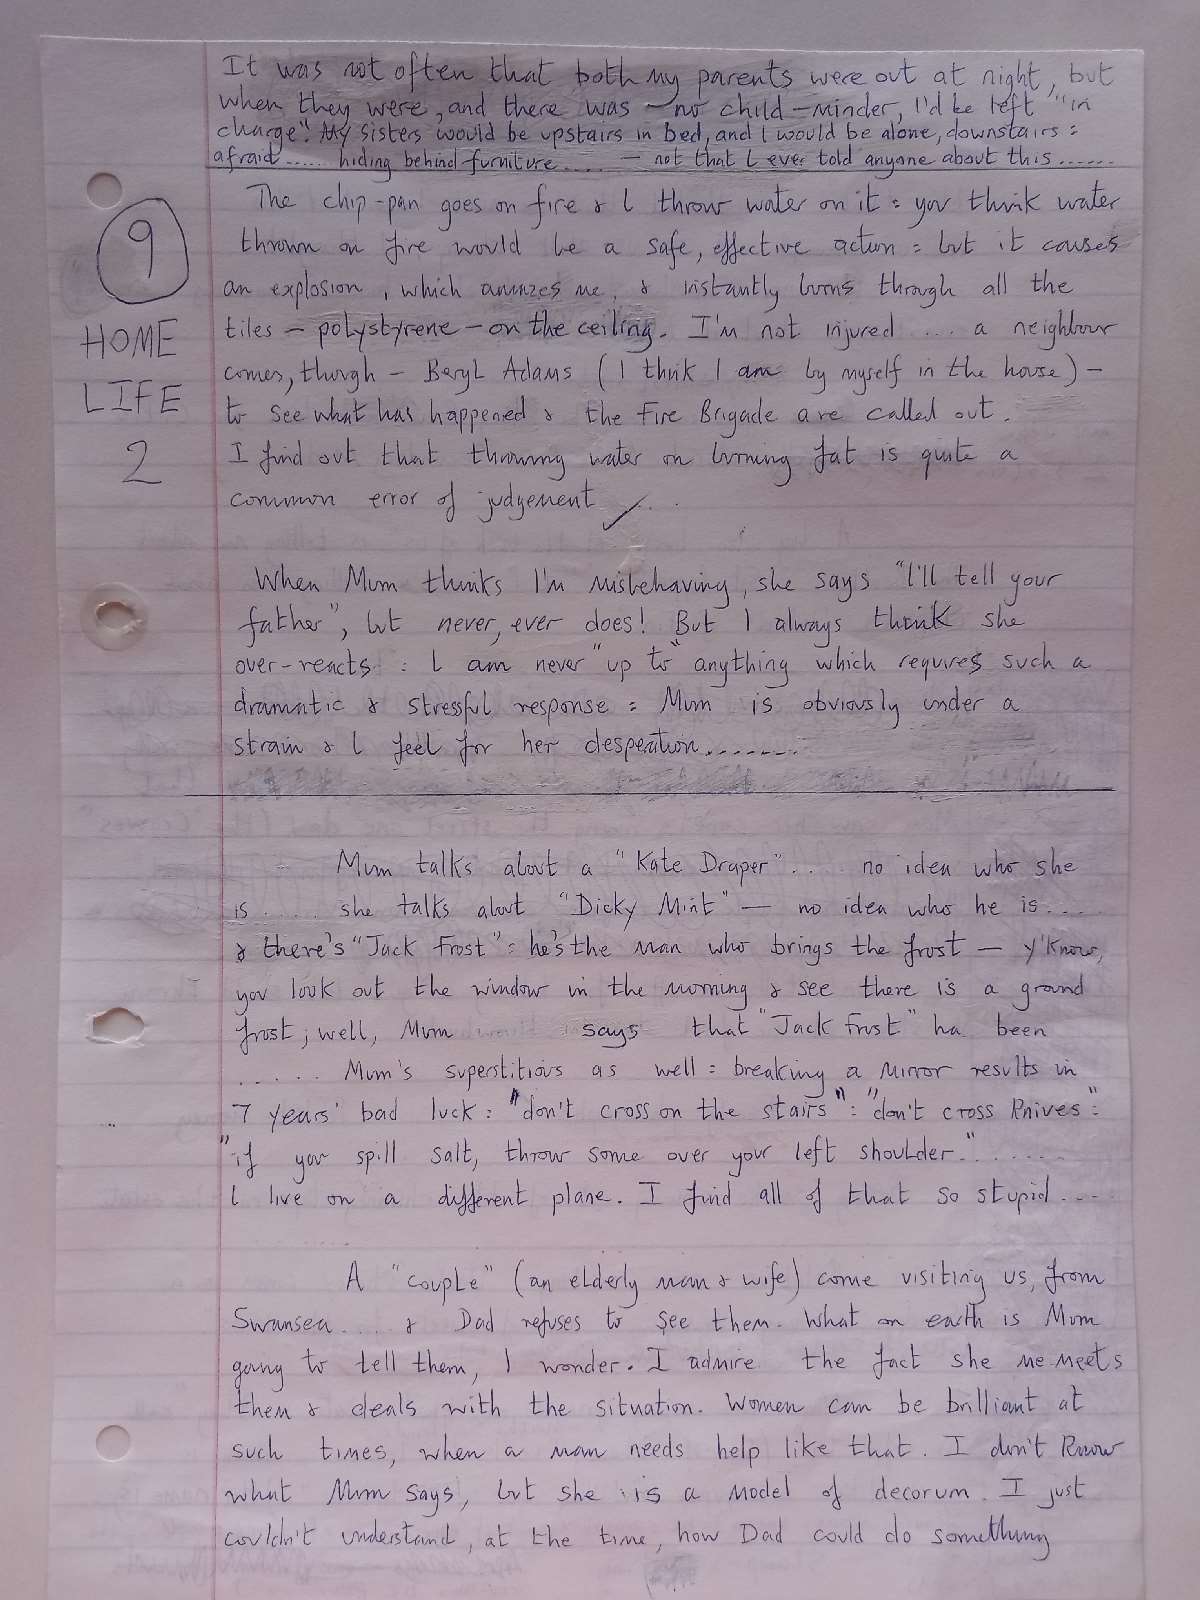 It was not often that both my parents were out at night, but
when they were, and there was - no child-minder, I'd be left "in
charge". My sisters would be upstairs in bed, and I would be alone, downstairs:
afraid..... hiding behind furniture..... - not that I ever told anyone about this......
The chip-pan goes on fire & I throw water on it: you think water
thrown on fire would be a safe, effective action: but it causes
an explosion, which amazes me, & instantly burns through all the
tiles - polystyrene - on the ceiling. I'm not injured.... a neighbour
comes, though - Beryl Adams (I think I am by myself in the house) -
to see what has happened & the Fire Brigade are called out.
I find out that throwing water on burning fat is quite a
common error of judgement
9
HOME
LIFE
2
When Mum thinks I'm misbehaving, she says "I'll tell your
father", but never, ever does! But I always think she
over-reacts: I am never "up to" anything which requires such a
dramatic & stressful response: Mum is obviously under a
strain & I feel for her desperation.......
Mum talks about a "Kate Draper".... no idea who she
is..... she talks about "Dicky Mint" - no idea who he is....
& there's "Jack Frost": he's the man who brings the frost - y'know,
you look out the window in the morning & see there is a ground
frost; well, Mum says that "Jack Frost" ha been
..... Mum's superstitious as well: breaking a mirror results in
7 years' bad luck: "don't cross on the stairs": "don't cross knives":
"if you spill salt, throw some over your left shoulder."......
I live on a different plane. I find all of that so stupid....
A "couple" (an elderly man & wife) come visiting us, from
Swansea.... & Dad refuses to see them. What on earth is Mum
going to tell them, I wonder. I admire the fact she me meets
them & deals with the situation. Women can be brilliant at
such times, when a man needs help like that. I don't know
what Mum says, but she is a model of decorum. I just
couldn't understand, at the time, how Dad could do something